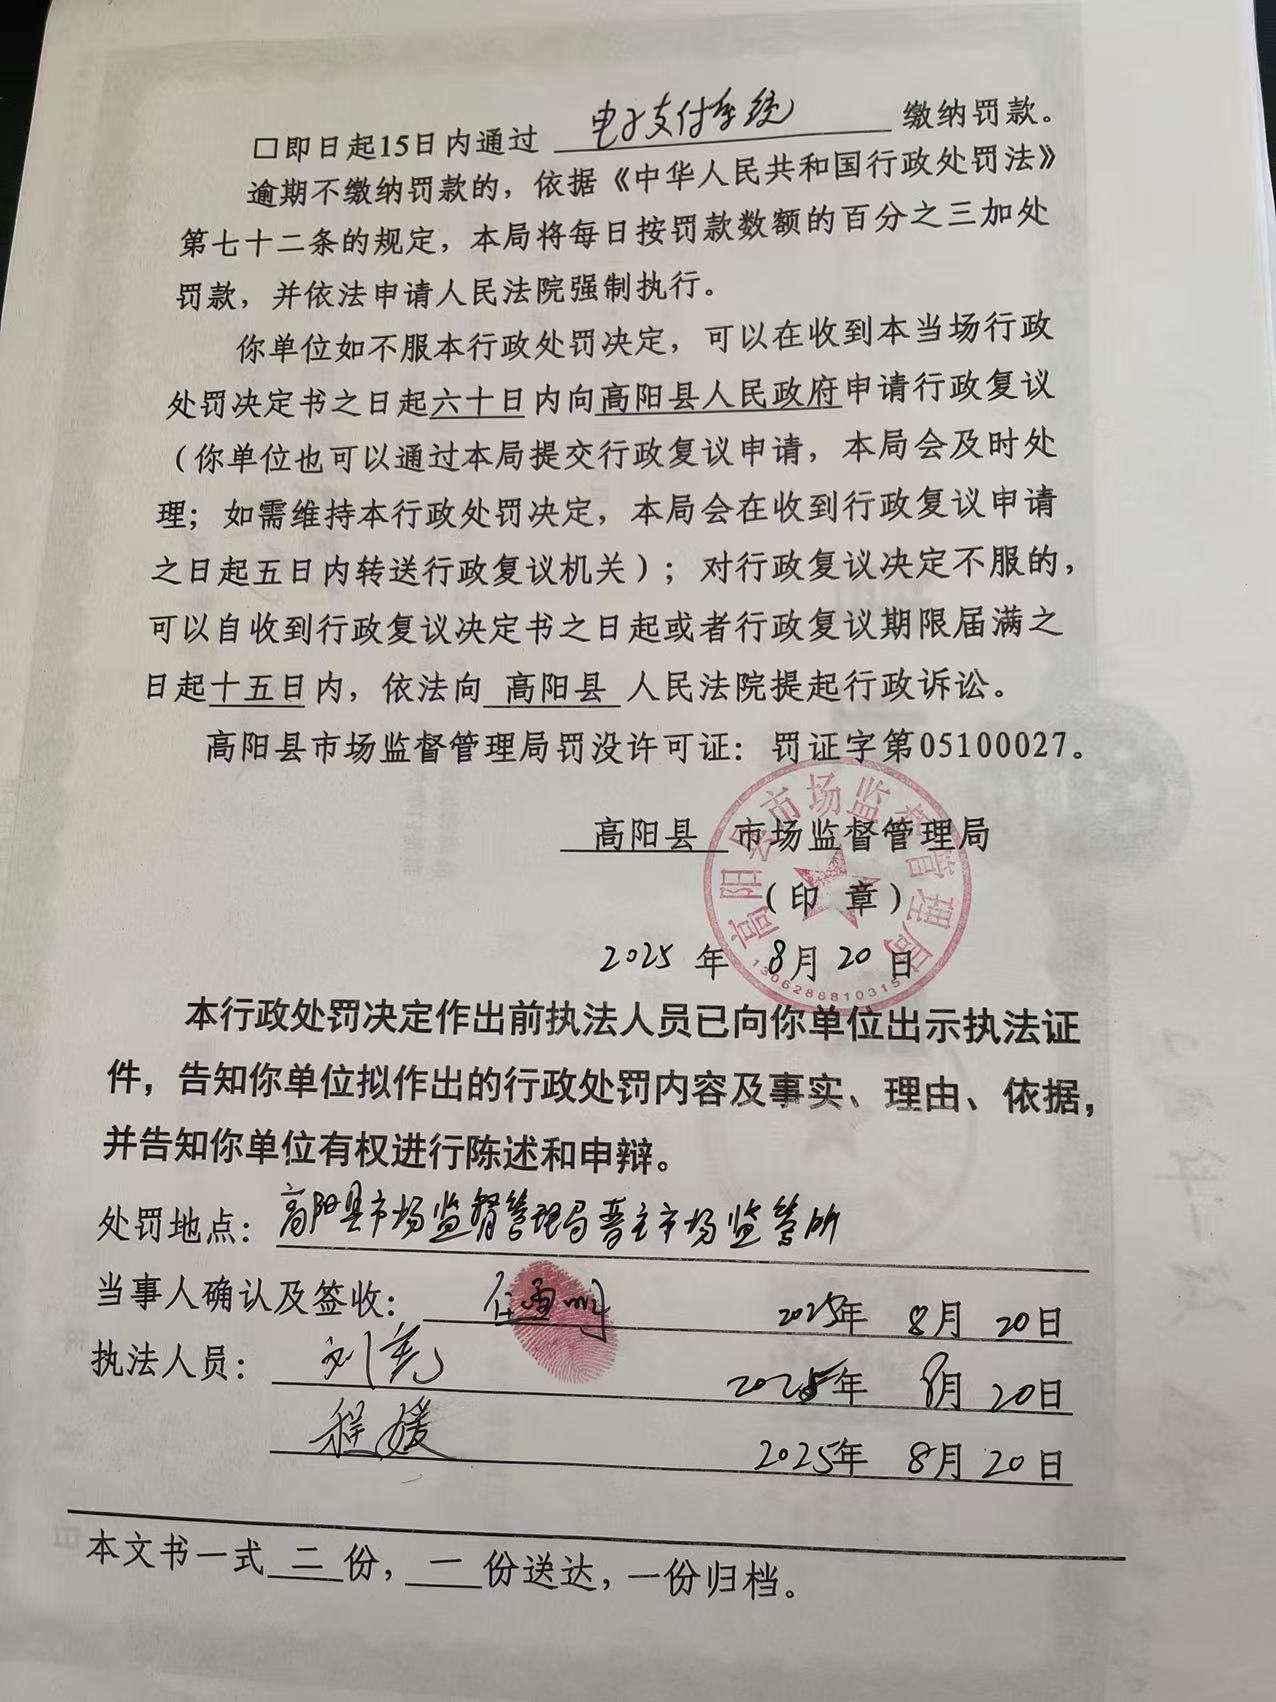 □即日起15日内通过 电子支付系统 缴纳罚款。
逾期不缴纳罚款的，依据《中华人民共和国行政处罚法》
第七十二条的规定，本局将每日按罚款数额的百分之三加处
罚款，并依法申请人民法院强制执行。
你单位如不服本行政处罚决定，可以在收到本当场行政
处罚决定书之日起六十日内向高阳县人民政府申请行政复议
（你单位也可以通过本局提交行政复议申请，本局会及时处
理；如需维持本行政处罚决定，本局会在收到行政复议申请
之日起五日内转送行政复议机关）；对行政复议决定不服的，
可以自收到行政复议决定书之日起或者行政复议期限届满之
日起十五日内，依法向 高阳县 人民法院提起行政诉讼。
高阳县市场监督管理局罚没许可证：罚证字第05100027。
高阳县 市场监督管理局
（印 章）
高阳县市场监督管理局
1306288810315
2025 年 8月 20 日
本行政处罚决定作出前执法人员已向你单位出示执法证
件，告知你单位拟作出的行政处罚内容及事实、理由、依据，
并告知你单位有权进行陈述和申辩。
处罚地点：高阳县市场监督管理局晋庄市场监管所
当事人确认及签收： 2025年 8月 20日
执法人员： 刘亮 2025年 8月 20日
程媛 2025年 8月 20日
本文书一式 二 份， 一 份送达，一份归档。